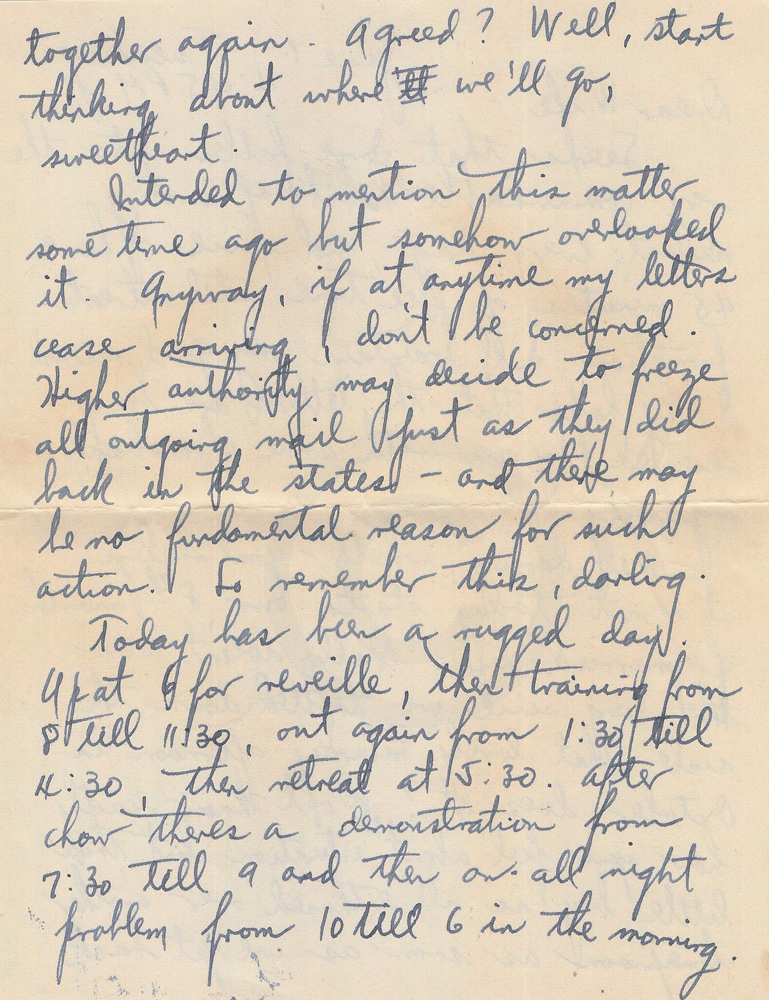 together again. Agreed? Well, start
thinking about where we'll go,
sweetheart.
Intended to mention this matter
some time ago but somehow overlooked
it. Anyway, if at anytime my letters
cease arriving, don't be concerned.
Higher authority may decide to freeze
all outgoing mail just as they did
back in the states - and there may
be no fundamental reason for such
action. So remember this, darling.
Today has been a rugged day.
Up at 6 for reveille, then training from
8 till 11:30, out again from 1:30 till
4:30, then retreat at 5:30. After
chow theres a demonstration from
7:30 till 9 and then an all night
problem from 10 till 6 in the morning.